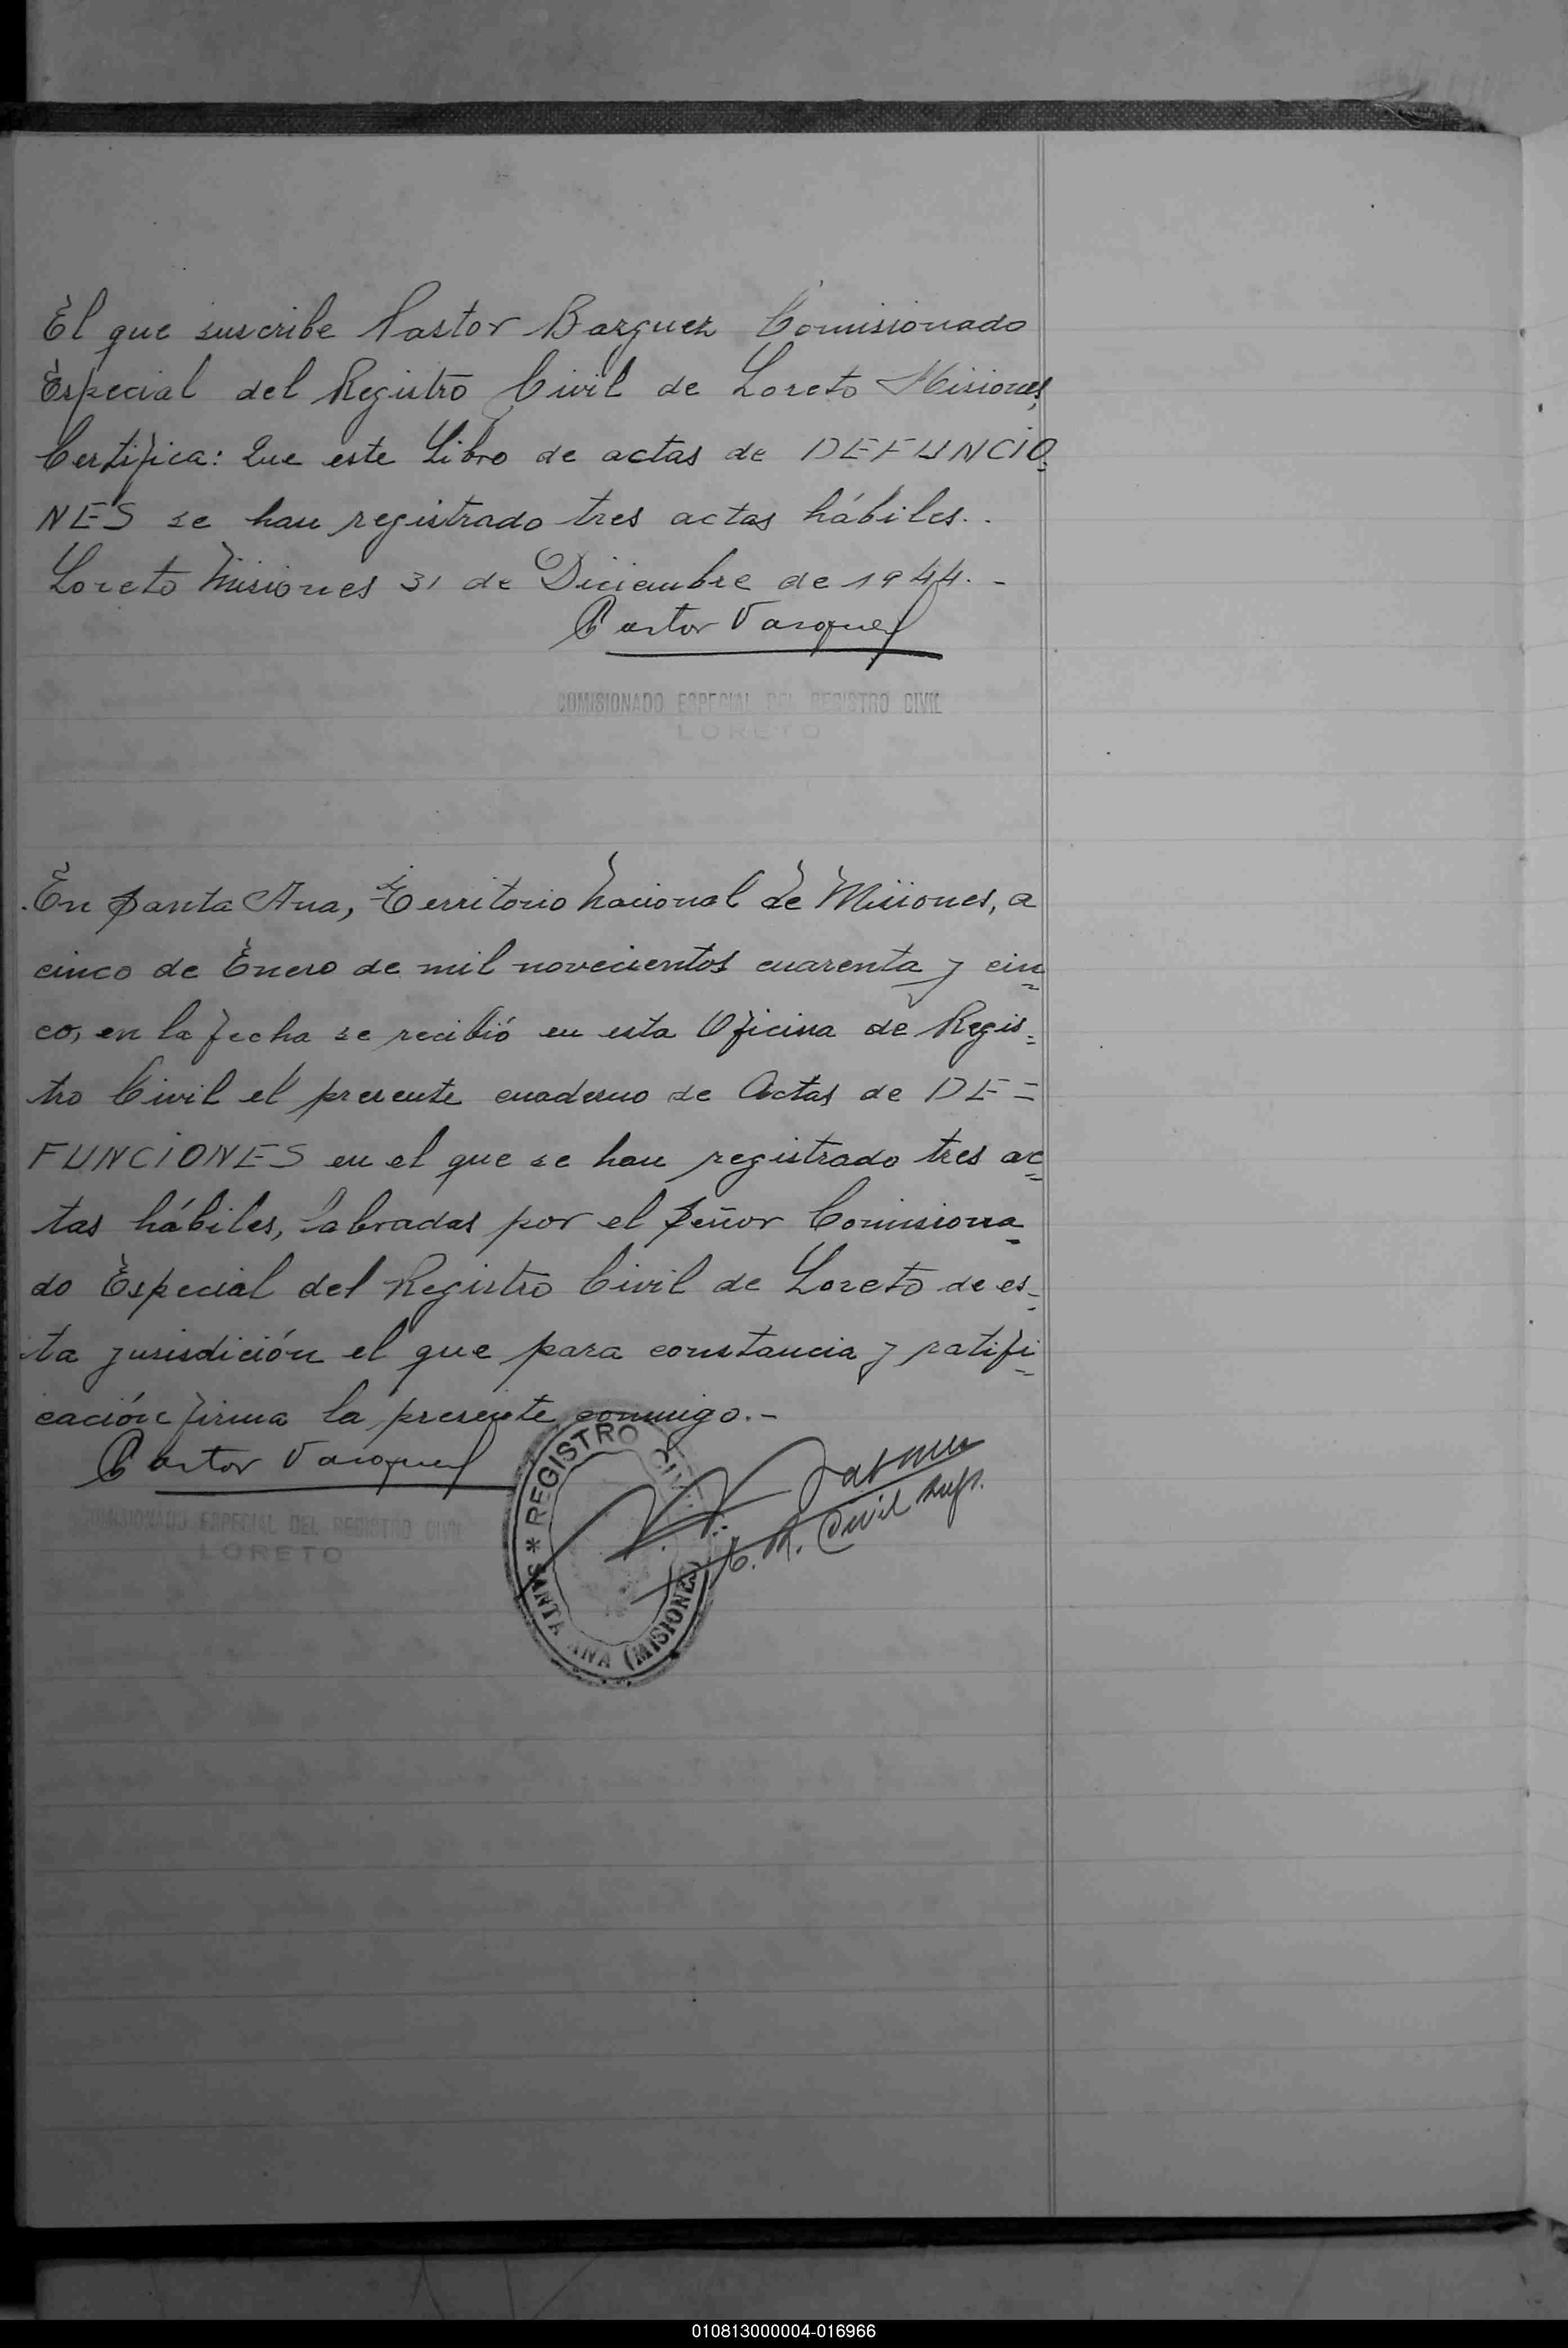 El que suscribe Pastor Bazquez Comisionado
Especial del Registro Civil de Loreto Misiones,
Certifica: Que este Libro de actas de DEFUNCIO-
NES se han registrado tres actas hábiles..
Loreto Misiones 31 de Diciembre de 1944.-
Pastor Vasquez
COMISIONADO ESPECIAL DEL REGISTRO CIVIL
LORETO
En Santa Ana, Territorio Nacional de Misiones, a
cinco de Enero de mil novecientos cuarenta y cin=
co, en la fecha se recibió en esta Oficina de Regis=
tro Civil el presente cuaderno de Actas de DE=
FUNCIONES en el que se han registrado tres ac=
tas hábiles, labradas por el Señor Comisiona=
do Especial del Registro Civil de Loreto de es=
ta jurisdición el que para constancia y ratifi=
cación firma la presente conmigo.-
Pastor Vasquez
COMISIONADO ESPECIAL DEL REGISTRO CIVIL
LORETO
REGISTRO CIVIL
* SANTA ANA (MISIONES)
Civil
010813000004-016966